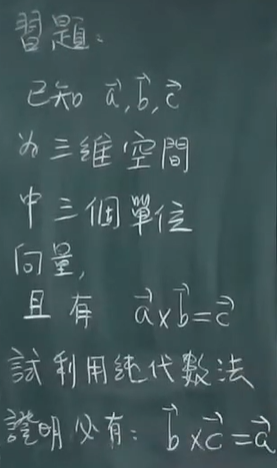 習題：
已知 a⃗,b⃗,c⃗
為三維空間
中三個單位
向量,
且有 a⃗×b⃗=c⃗
試利用純代數法
證明必有: b⃗×c⃗=a⃗